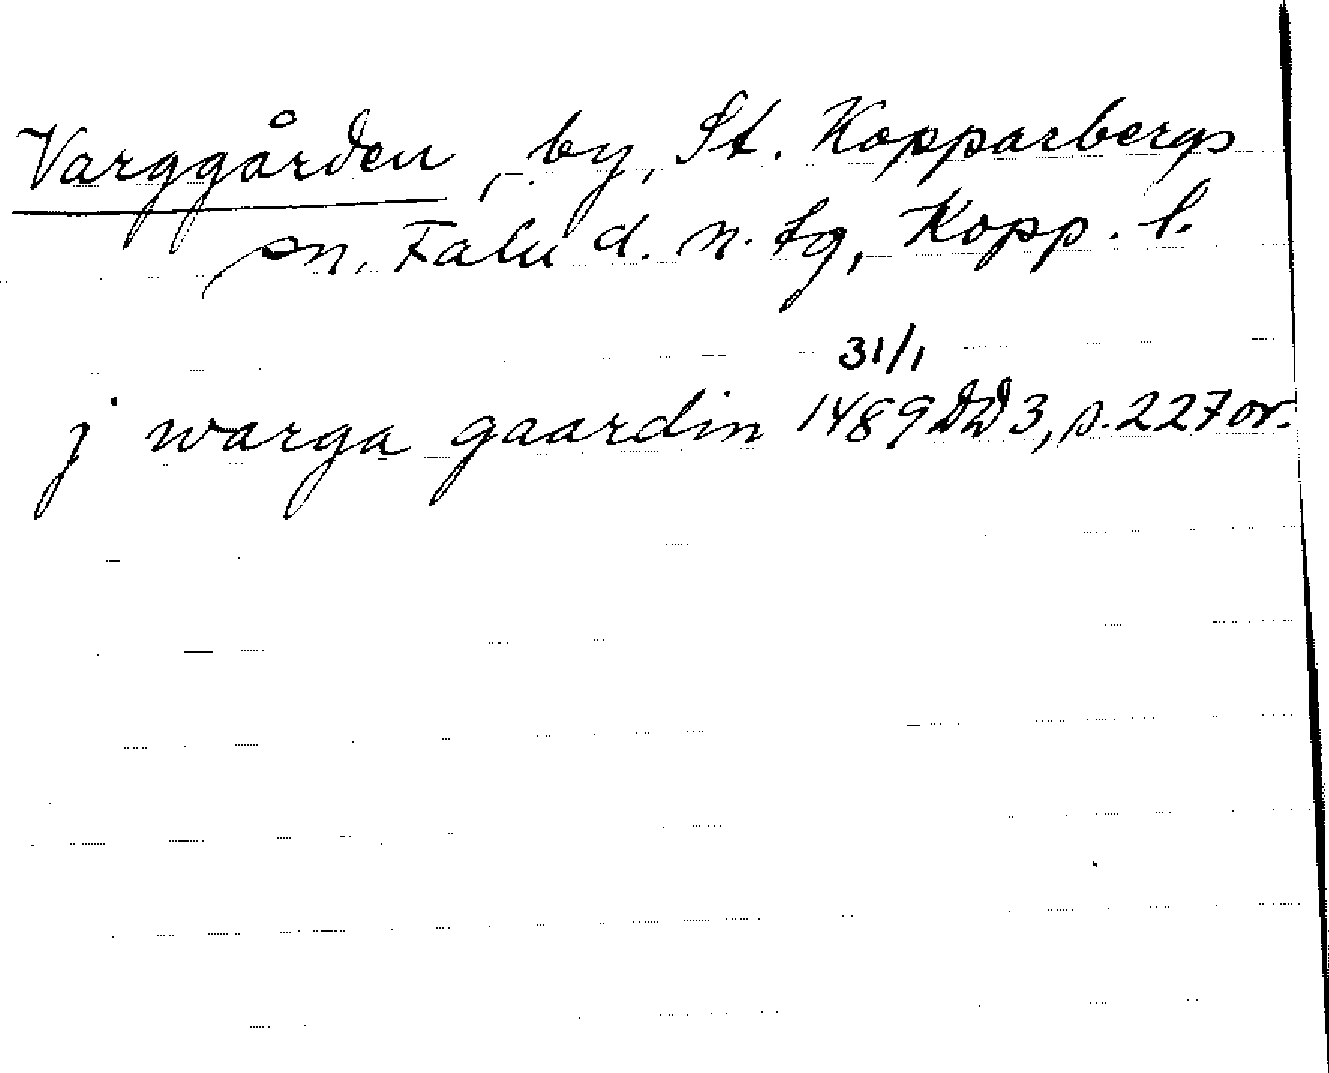 Varggården, by, St. Kopparbergs
sn. Falu d. n. tg, Kopp. l.
31/1
j warga gaardin 1489 DD 3, s. 227 or.